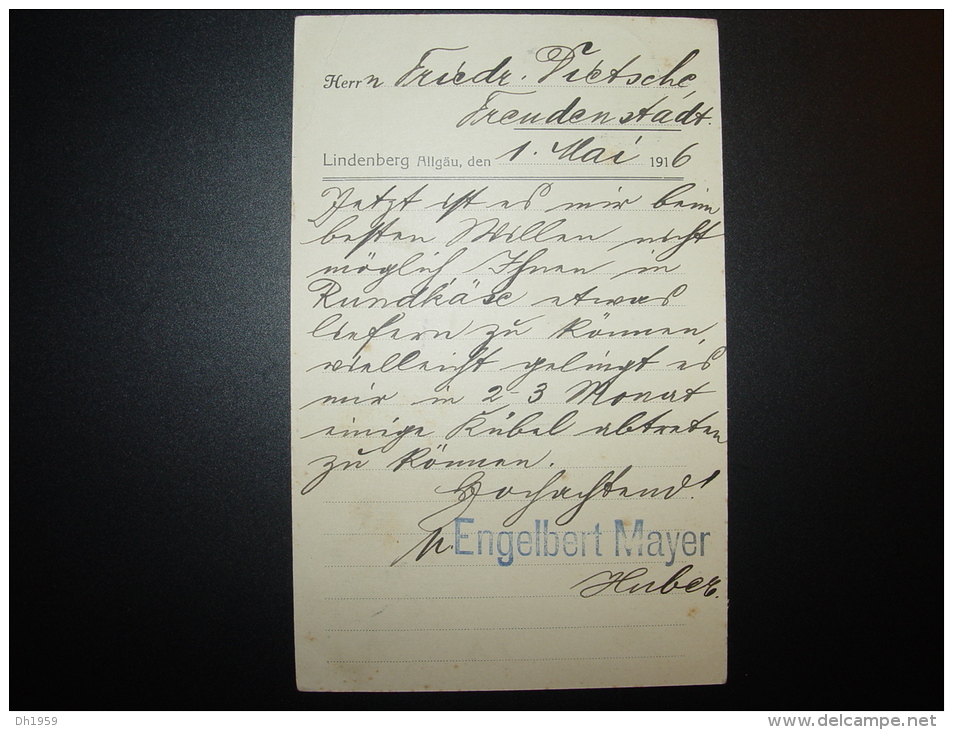 Herrn Friedr. Dietsche,
Freudenstadt.
Lindenberg Allgäu, den 1. Mai 1916
Jetzt ist es mir beim
besten Willen nicht
möglich, Ihnen in
Rundkäse etwas
liefern zu können,
vielleicht gelingt es
mir in 2-3 Monat
einige Kübel abtreten
zu können.
Hochachtend!
p. Engelbert Mayer
Huber.
Dh1959
www.delcampe.net